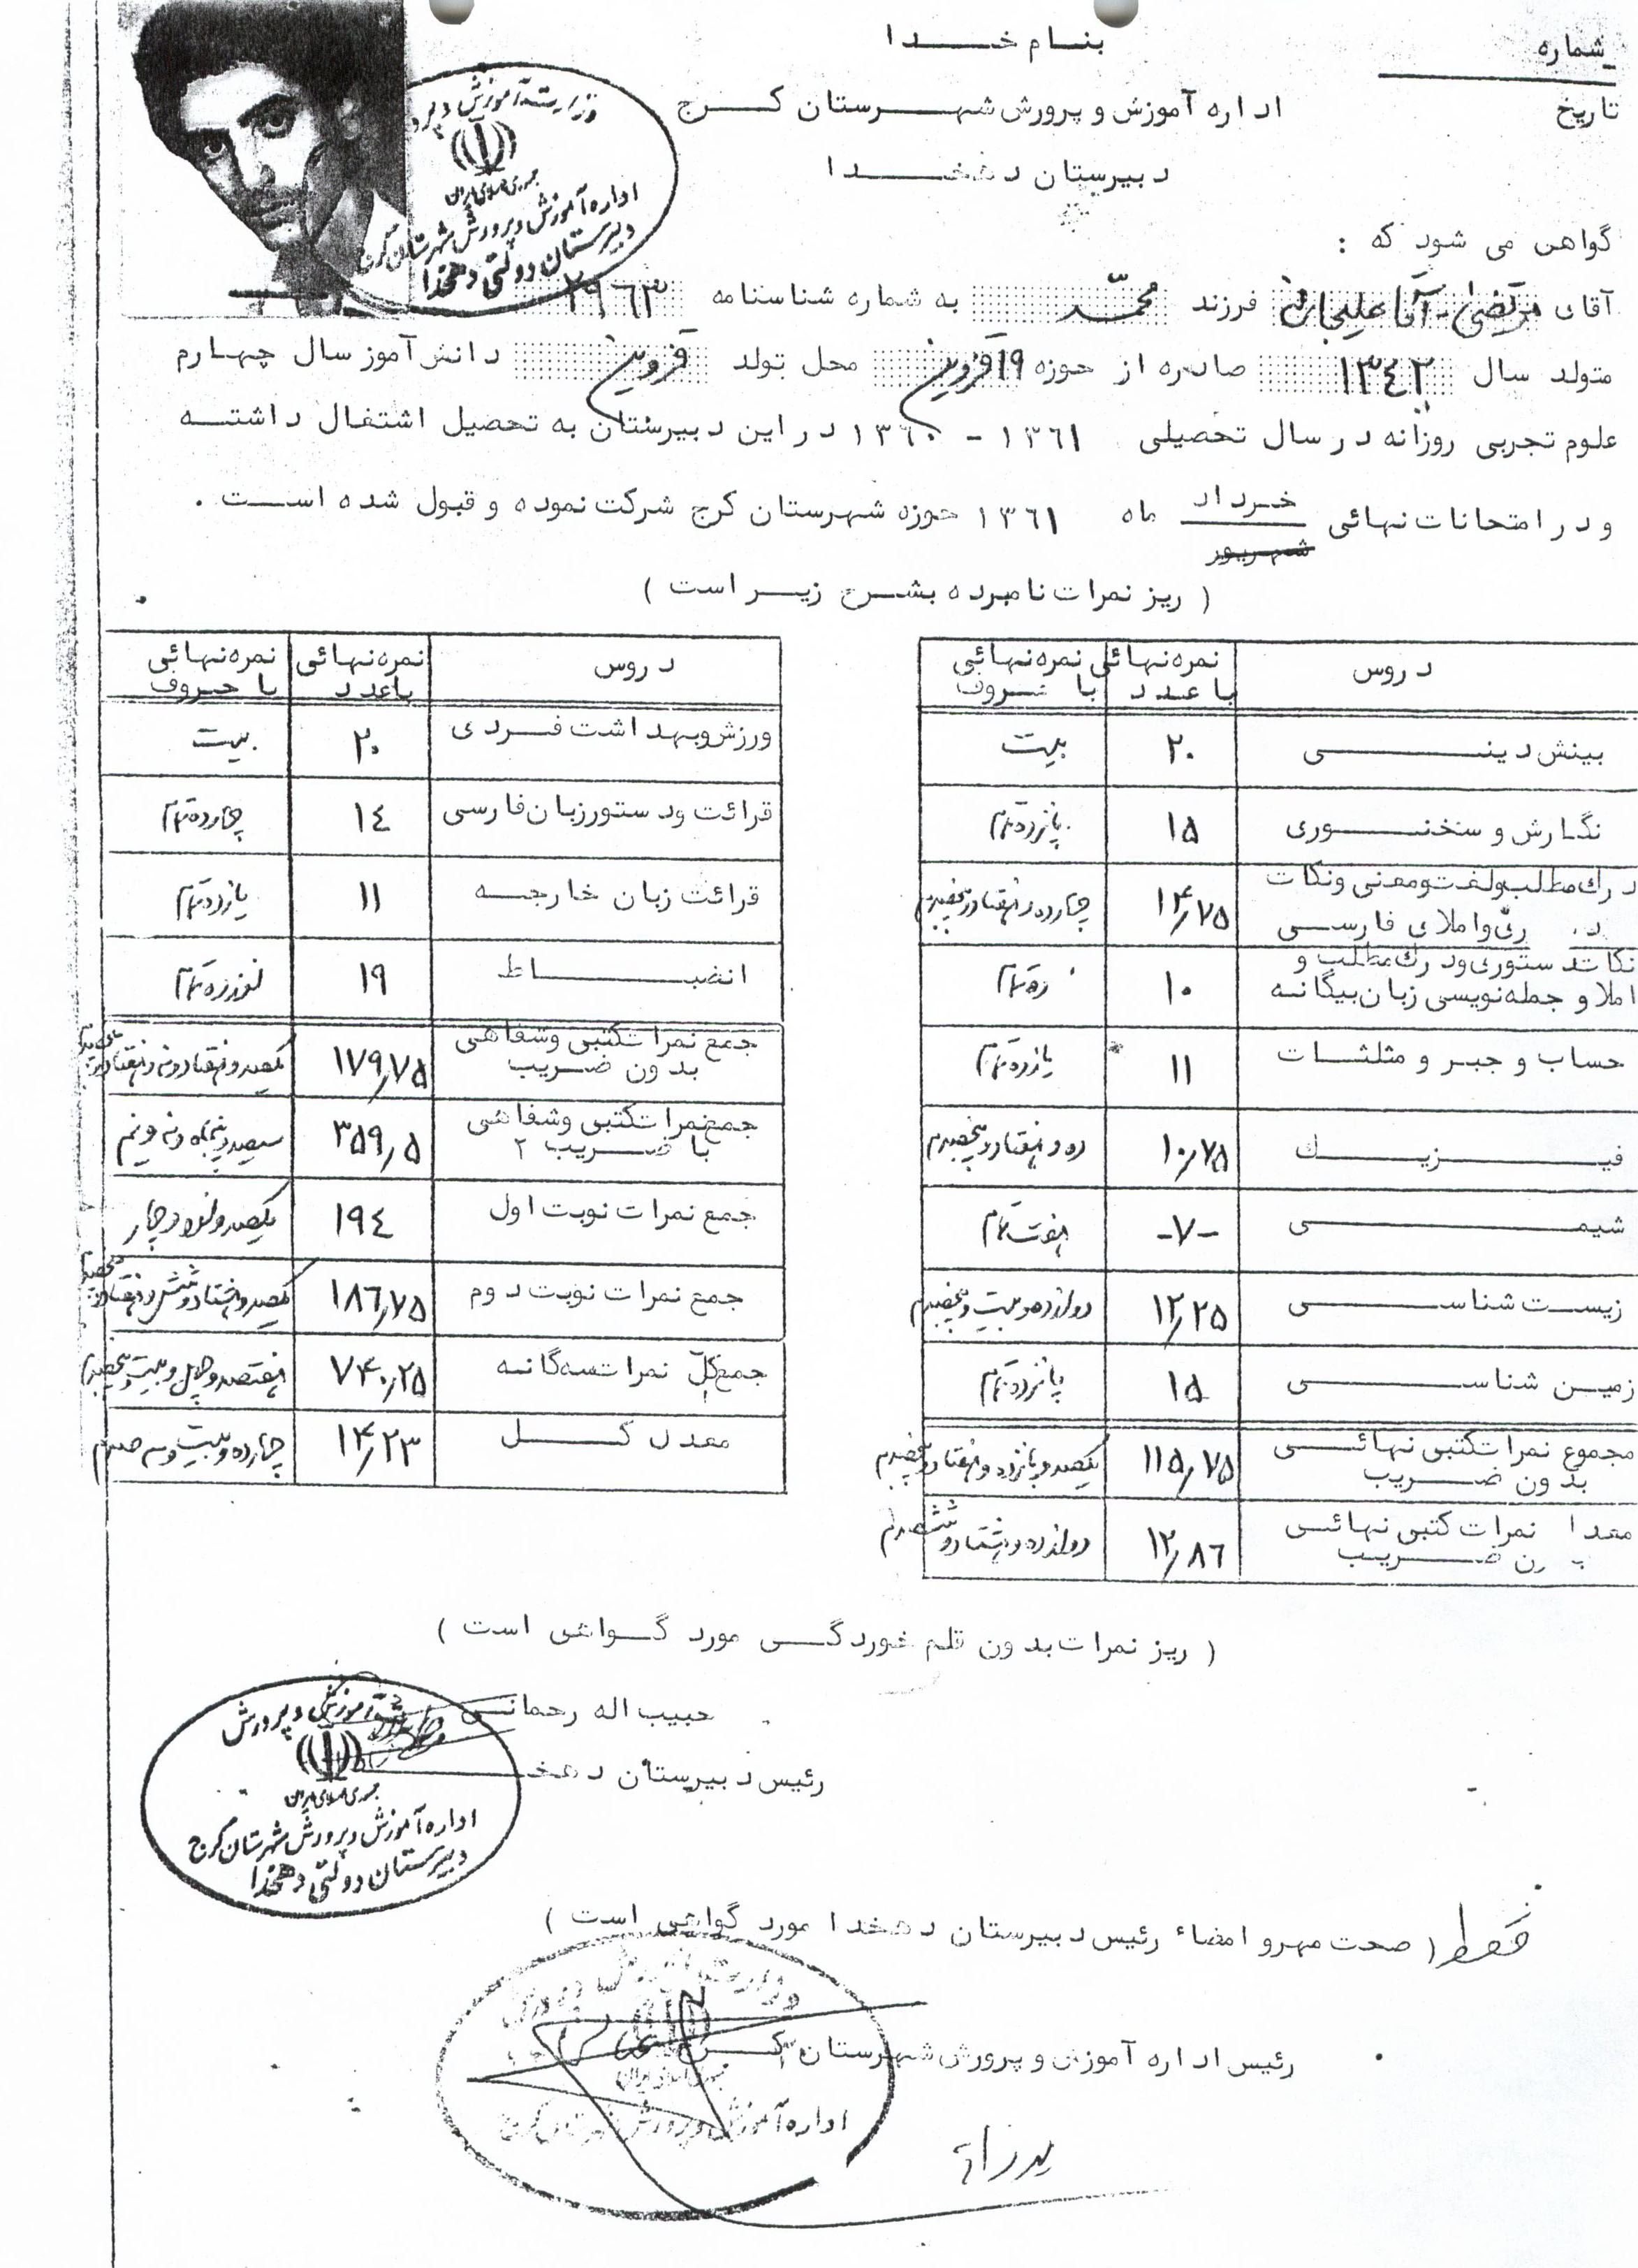 بنام خدا
شماره
اداره آموزش و پرورش شهرستان کرج
تاریخ
دبیرستان دهخدا
وزارت آموزش و پرورش
جمهوری اسلامی ایران
اداره آموزش و پرورش شهرستان کرج
دبیرستان دولتی دهخدا
گواهی می شود که :
آقای مرتضی آقا علیجانی فرزند محمّد به شماره شناسنامه ۲۹۶۳
متولد سال ۱۳٤۲ صادره از حوزه ۱۹ قزوین محل تولد قزوین دانش آموز سال چهارم
علوم تجربی روزانه در سال تحصیلی ۱۳٦۱ - ۱۳٦۰ در این دبیرستان به تحصیل اشتغال داشته
و در امتحانات نهائی خرداد ماه ۱۳٦۱ حوزه شهرستان کرج شرکت نموده و قبول شده است .
شهریور
( ریز نمرات نامبرده بشرح زیر است )
دروس نمره نهائی با عدد نمره نهائی با حروف
بینش دینی ۲۰ بیست
نگارش و سخنوری ۱۵ پانزده تمام
درك مطلب ولغت ومعنی ونکات
املای فارسی ۱۴/۷۵ چهارده و هفتاد و پنجصدم
نکات دستوری ودرك مطلب و
املا و جمله نویسی زبان بیگانه ۱۰ ده تمام
حساب و جبر و مثلثات ۱۱ یازده تمام
فیزیك ۱۰/۷۵ ده و هفتاد و پنجصدم
شیمی -۷- هفت تمام
زیست شناسی ۱۲/۲۵ دوازده و بیست و پنجصدم
زمین شناسی ۱۵ پانزده تمام
مجموع نمرات کتبی نهائی
بدون ضریب ۱۱۵/۷۵ یکصد و پانزده و هفتاد و پنجصدم
نمرات کتبی نهائی
ضریب ۱۲/۸٦ دوازده و هشتاد و ششصدم
دروس نمره نهائی با عدد نمره نهائی با حروف
ورزش وبهداشت فردی ۲۰ بیست
قرائت ودستورزبان فارسی ۱٤ چهارده تمام
قرائت زبان خارجه ۱۱ یازده تمام
انضباط ۱۹ نوزده تمام
جمع نمرات کتبی وشفاهی
بدون ضریب ۱۷۹/۷۵ یکصد و هفتاد و نه و هفتاد و پنجصدم
جمع نمرات کتبی وشفاهی
با ضریب ۲ ۳۵۹/۵ سیصد و پنجاه و نه و نیم
جمع نمرات نوبت اول ۱۹٤ یکصد و نود و چهار
جمع نمرات نوبت دوم ۱۸٦/۷۵ یکصد و هشتاد و شش و هفتاد و پنجصدم
جمع کلّ نمرات سه گانه ۷۴۰/۲۵ هفتصد و چهل و بیست و پنجصدم
معدل کل ۱۴/۲۳ چهارده و بیست و سه صدم
( ریز نمرات بدون قلم خوردگی مورد گواهی است )
حبیب اله رحمانی
رئیس دبیرستان
آموزش و پرورش
جمهوری اسلامی ایران
اداره آموزش و پرورش شهرستان کرج
دبیرستان دولتی دهخدا
فقط ( صحت مهر و امضاء رئیس دبیرستان دهخدا مورد گواهی است )
رئیس اداره آموزش و پرورش شهرستان کرج
اداره آموزش و پرورش شهرستان کرج